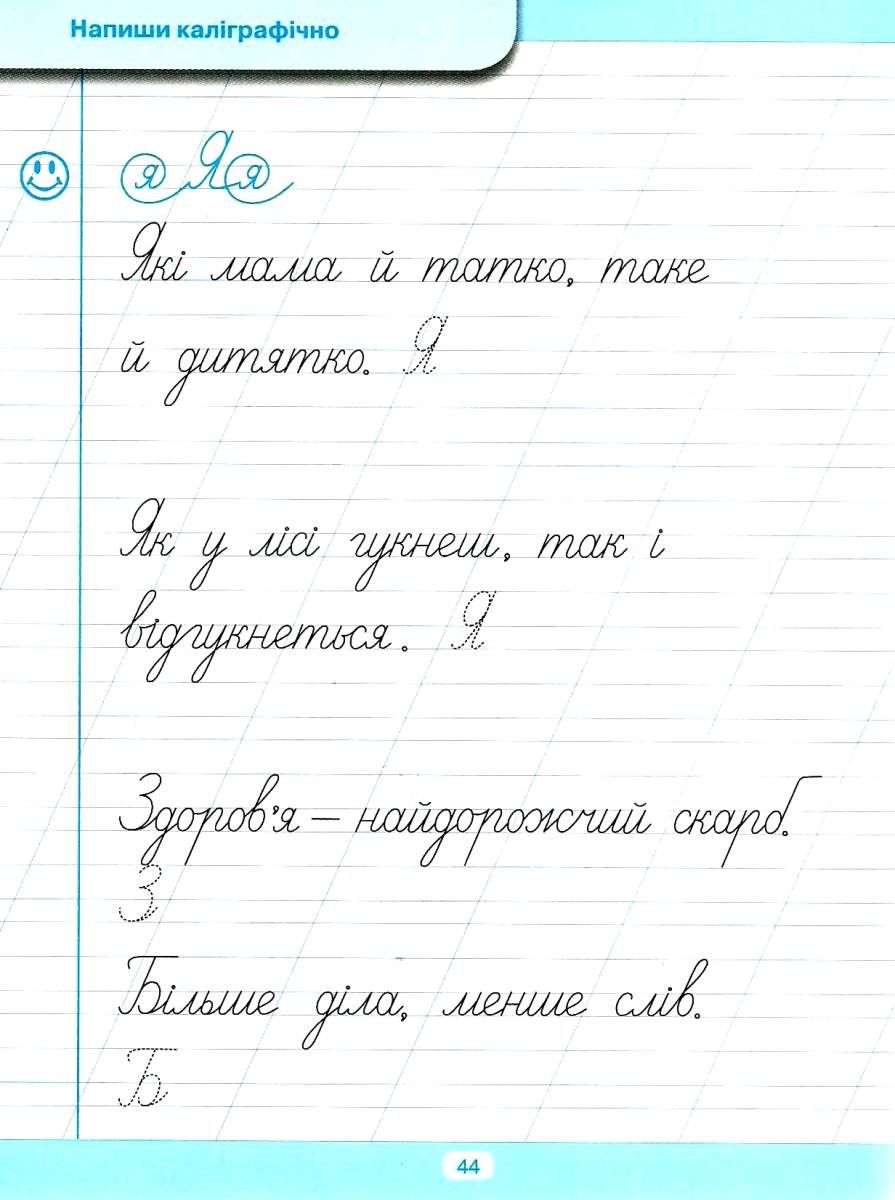 Напиши каліграфічно
я Я я
Які мама й татко, таке
й дитятко. Я
Як у лісі гукнеш, так і
відгукнеться. Я
Здоров'я – найдорожчий скарб.
З
Більше діла, менше слів.
Б
44